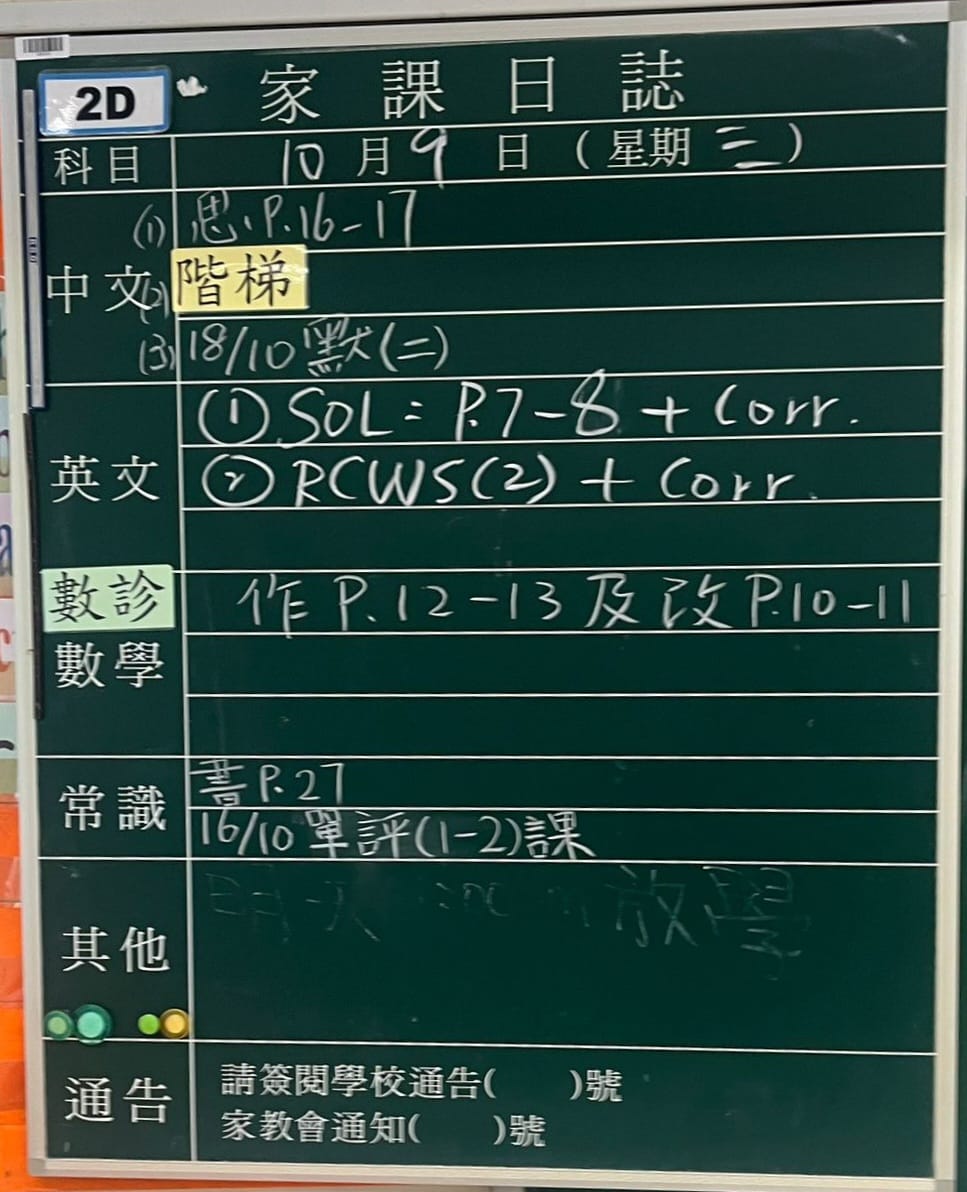 2D
家課日誌
科目 10月9日(星期三)
中文 (1) 思、P.16-17
(2) 階梯
(3) 18/10 默(二)
英文 ① SOL = P.7-8 + Corr.
② RCWS(2) + Corr.
數診 作 P.12-13 及改 P.10-11
數學
常識 書 P.27
16/10 單評(1-2)課
其他 明天 放學
通告 請簽閱學校通告( )號
家教會通知( )號